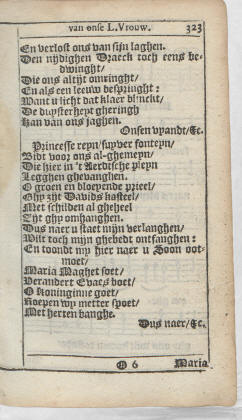 van onse L. Vrouw. 323
En verlost ons van sijn laghen.
Den nijdighen Draeck toch eens be-
dwinght/
Die ons altijt omringht/
En als een leeuw bespringht:
Want u licht dat klaer blinckt/
De duysterheyt gheringh
Kan van ons jaghen.
Onsen vyandt/&c.
Princesse reyn/suyver fonteyn/
Bidt voor ons al-ghemeyn/
Die hier in 't Aerdtsche pleyn
Legghen ghevanghen.
O groen en bloeyende prieel/
Ghy zijt Davids kasteel/
Met schilden al gheheel
Zijt ghy omhanghen.
Dus naer u staet mijn verlanghen/
Wilt toch mijn ghebedt ontfanghen:
En toondt my hier naer u Soon oot-
moet/
Maria Maghet soet/
Verandert Evaes boet/
O Koninginne goet/
Roepen wy metter spoet/
Met herten banghe.
Dus naer/&c.
O 6 Maria